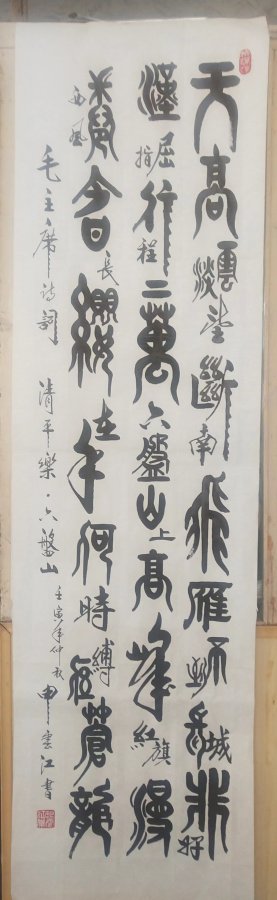 天高雲淡望斷南飛雁不到長城非好
漢屈指行程二萬六盤山上高峰紅旗漫
卷西風今日長纓在手何時縛住蒼龍
毛主席诗詞 清平樂·六盤山 壬寅年仲秋 申雲江書